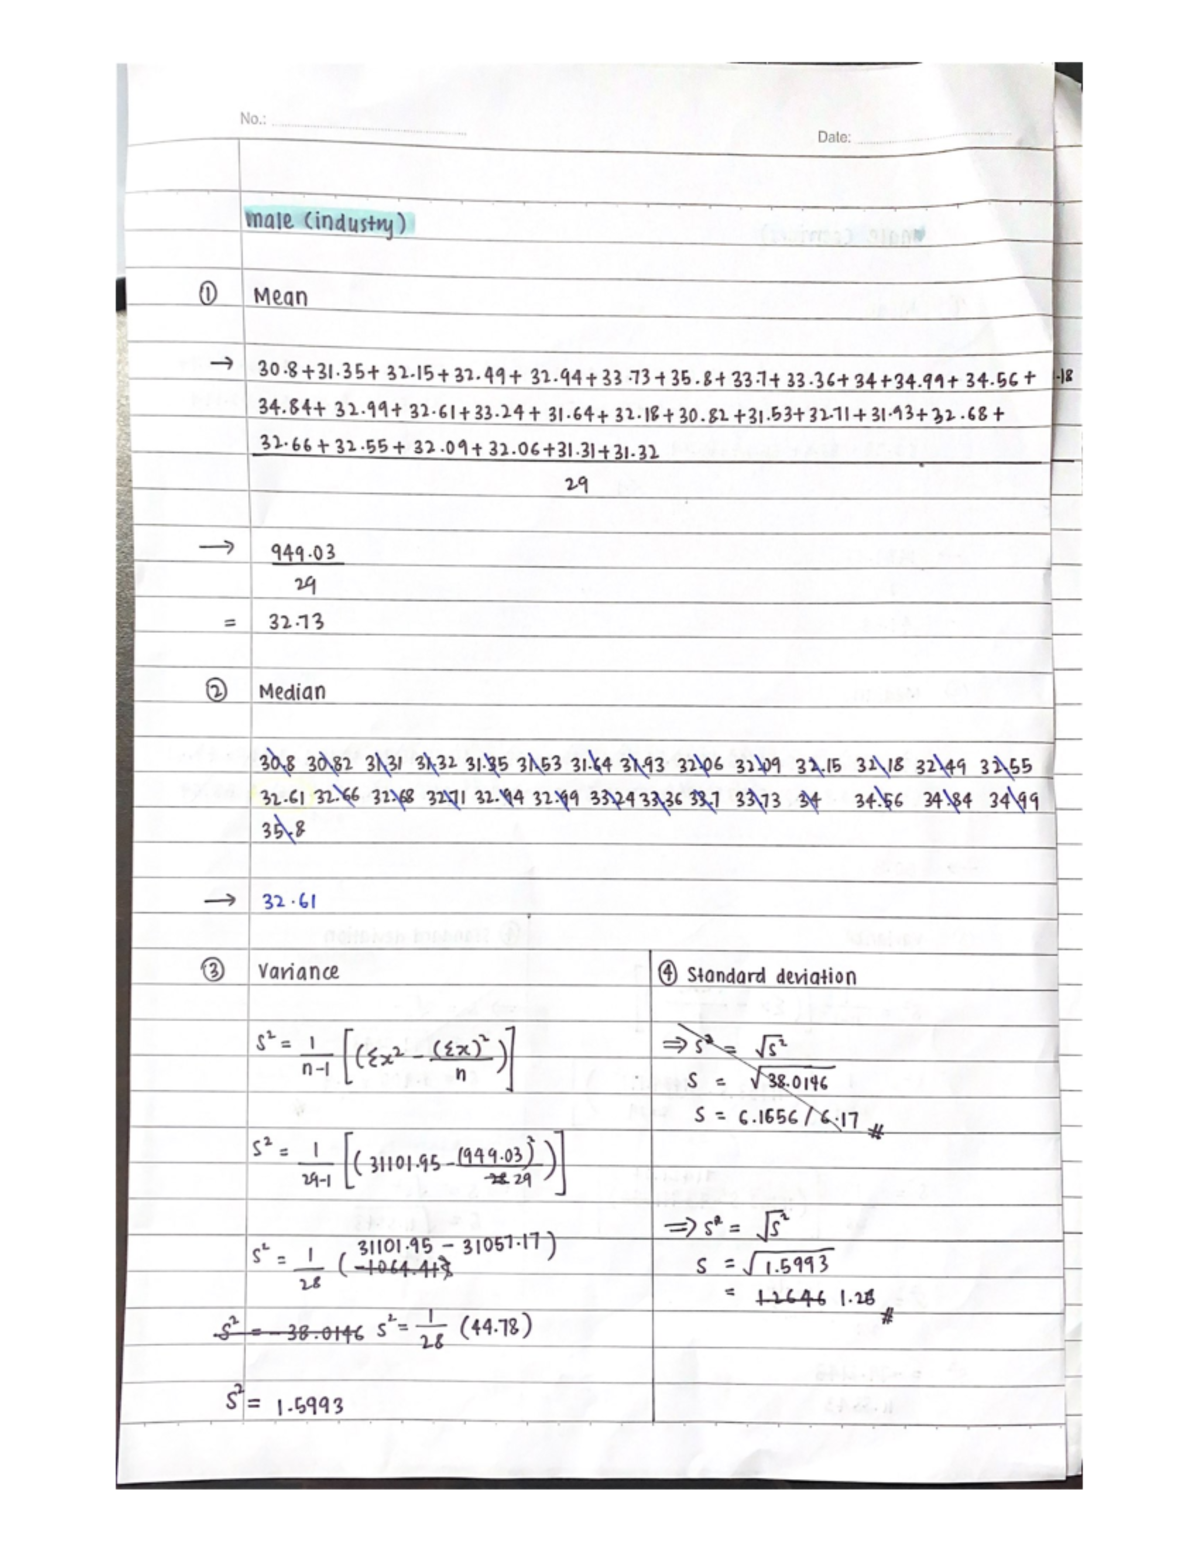 No.:
Date:
male (industry)
① Mean
→ 30.8+31.35+ 32.15+32.49+ 32.94+33.73+35.8+33.7+33.36+34+34.99+ 34.56+
34.84+ 32.99+ 32.61+33.24+ 31.64+32.18+30.82+31.53+32.71+31.93+32.68+
32.66+32.55+ 32.09+32.06+31.31+31.32
29
→ 949.03
29
= 32.73
② Median
30.8 30.82 31.31 31.32 31.35 31.53 31.64 31.93 32.06 32.09 32.15 32.18 32.49 32.55
32.61 32.66 32.68 32.71 32.94 32.99 33.24 33.36 33.7 33.73 34 34.56 34.84 34.99
35.8
→ 32.61
③ Variance
S² = 1/n-1 [(Σx² - (Σx)²/n)]
S² = 1/29-1 [(31101.95 - (949.03)²/28 29)]
S² = 1/28 (31101.95 - 31057.17)
S² = - 38.0146 S² = 1/28 (44.78)
S² = 1.5993
④ Standard deviation
⇒ S² = √S²
S = √38.0146
S = 6.1656 / 6.17 #
⇒ S² = √S²
S = √1.5993
= 1.2646 1.28 #